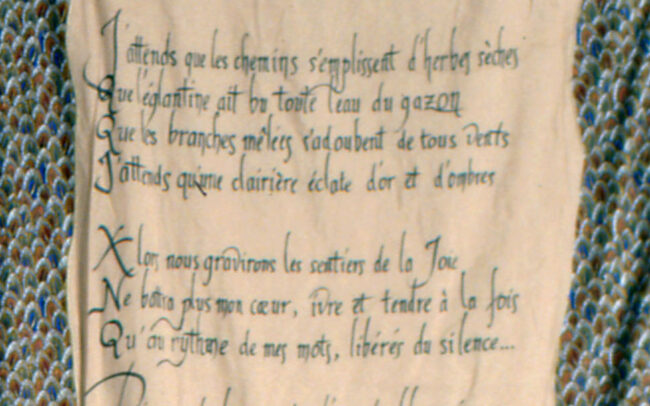 J'attends que les chemins s'emplissent d'herbes sèches
Que l'églantine ait bu toute l'eau du gazon
Que les branches mêlées s'adoubent de tous vents
J'attends qu'une clairière éclate d'or et d'ombres
Alors nous gravirons les sentiers de la Joie
Ne battra plus mon cœur, ivre et tendre à la fois
Qu'au rythme de mes mots, libérés du silence...